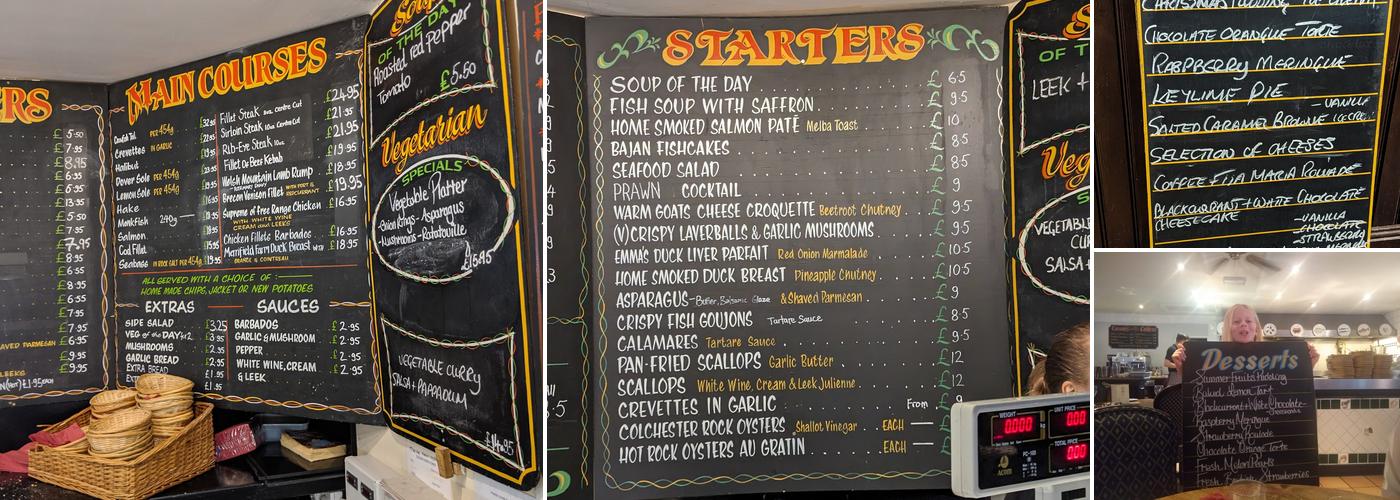 RS
£ 5.50
£ 7.95
£ 8.95
£ 6.55
£ 5.95
£ 7.95
£ 6.95
£ 9.95
MAIN COURSES
PER 454g
Crevettes IN GARLIC
Halibut
Dover Sole PER 454g
Lemon Sole PER 454g
Hake
Monkfish 240g
Salmon
Cod Fillet
Seabass IN ROCK SALT PER 454g 19.95
Fillet Steak 8oz Centre Cut £24.95
Sirloin Steak 10oz Centre Cut £21.95
Rib-Eye Steak 10oz £21.95
Fillet Of Beef Kebab £19.95
Welsh Mountain Lamb Rump £18.95
Brecon Venison Fillet WITH PORT & REDCURRANT £19.95
Supreme of Free Range Chicken £16.95
WITH WHITE WINE
CREAM and LEEKS
Chicken Fillets Barbados £16.95
Duck Breast £18.95
ORANGE & COINTREAU
ALL SERVED WITH A CHOICE OF :
HOME MADE CHIPS, JACKET OR NEW POTATOES
EXTRAS
SIDE SALAD £3.25
VEG of the DAY
MUSHROOMS
GARLIC BREAD
EXTRA BREAD
SAUCES
BARBADOS £2.95
GARLIC & MUSHROOM £2.95
PEPPER £2.95
WHITE WINE, CREAM £2.95
& LEEK
Soup
OF THE DAY
Roasted red Pepper
Tomato £5.50
Vegetarian
SPECIALS
Vegetable Platter
Onion Rings - Asparagus
Mushrooms - Ratatouille
£15.95
VEGETABLE CURRY
SALSA + PAPADOUM
£14.95
STARTERS
SOUP OF THE DAY £ 6.5
FISH SOUP WITH SAFFRON £ 9.5
HOME SMOKED SALMON PATÉ Melba Toast £ 10
BAJAN FISHCAKES £ 8.5
SEAFOOD SALAD £ 8.5
PRAWN COCKTAIL £ 9
WARM GOATS CHEESE CROQUETTE Beetroot Chutney £ 9.5
(V) CRISPY LAVERBALLS & GARLIC MUSHROOMS £ 9.5
EMMA'S DUCK LIVER PARFAIT Red Onion Marmalade £ 10.5
HOME SMOKED DUCK BREAST Pineapple Chutney £ 10.5
ASPARAGUS - Butter, Balsamic Glaze & Shaved Parmesan £ 9
CRISPY FISH GOUJONS Tartare Sauce £ 8.5
CALAMARES Tartare Sauce £ 9.5
PAN-FRIED SCALLOPS Garlic Butter £ 12
SCALLOPS White Wine, Cream & Leek Julienne £ 12
CREVETTES IN GARLIC From £ 9
COLCHESTER ROCK OYSTERS Shallot Vinegar EACH
HOT ROCK OYSTERS AU GRATIN EACH
OF T
LEEK +
Veg
VEGETABLE
SALSA +
WEIGHT
UNIT PRICE
0.000
0.00
TOTAL PRICE
0.00
CHOCOLATE ORANGUE TORTE
RASPBERRY MERINGUE
KEYLIME PIE
SALTED CARAMEL BROWNIE - VANILLA ICE CREAM
SELECTION OF CHEESES
COFFEE + TIA MARIA ROULADE
BLACKCURRANT + WHITE CHOCOLATE
CHEESECAKE - VANILLA
- CHOCOLATE
- STRAWBERRY
Desserts
Summer Fruits Pudding
Baked Lemon Tart
Blackcurrant + White Chocolate
Cheesecake
Raspberry Meringue
Strawberry Roulade
Chocolate Orange Torte
Fresh Melon Pearls
Fresh British Strawberries